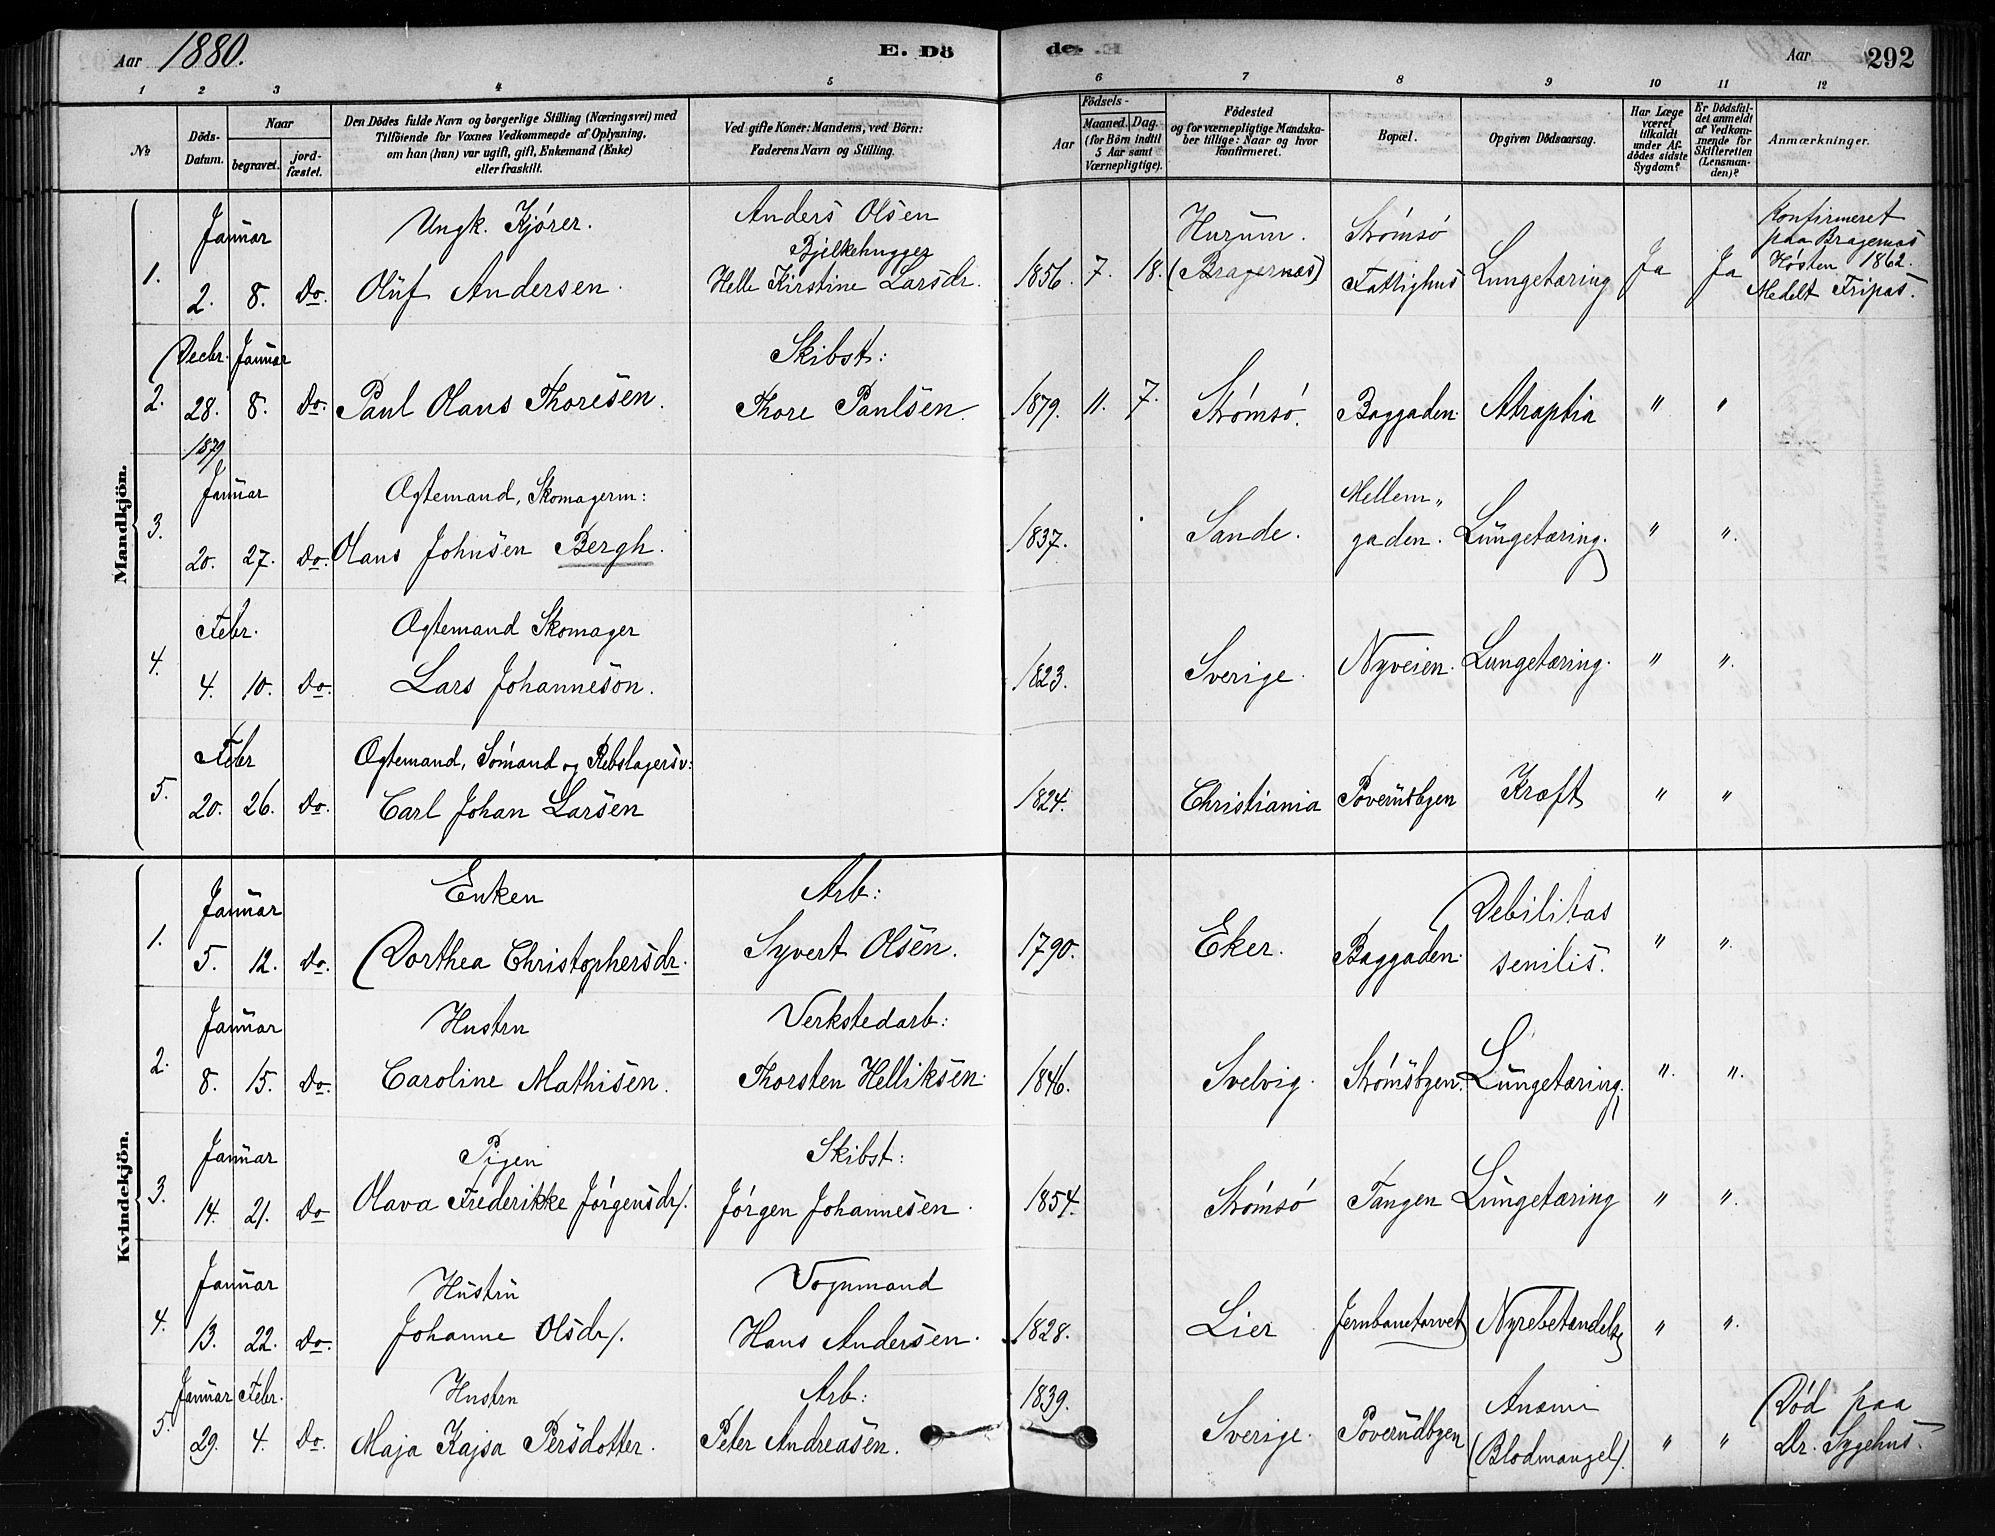 Aar 1880.
E. Dö
de.
Aar
292
1 2 3 4 5 6 7 8 9 10 11 12
No
Döds-Datum.
Naar
begravet.
jordfæstet.
Den Dödes fulde Navn og borgerlige Stilling (Næringsvei) med
Tilföiende for Voxnes Vedkommende af Oplysning,
om han (hun) var ugift, gift, Enkemand (Enke)
eller fraskilt.
Ved gifte Koner: Mandens, ved Börn:
Faderens Navn og Stilling.
Födsels-
Aar
Maaned. Dag.
(for Börn indtil
5 Aar samt
Værnepligtige).
Födested
og for værnepligtige Mandska-
ber tillige: Naar og hvor
konfirmeret.
Bopæl.
Opgiven Dödsaarsag.
Har Læge
været
tilkaldt
under Af-
dödes sidste
Sygdom?
Er Dödsfal-
det anmeldt
af Vedkom-
mende for
Skifteretten
(Lensman-
den)?
Anmærkninger.
Mandkjön.
Januar Ungk. Kjörer. Anders Olsen Hurum. Strømsø Konfirmeret
Bjelkehugger paa Bragernæs
1. 2. 8. Do. Oluf Andersen. Helle Kirstine Larsdr. 1856. 7. 18. (Bragernæs) Fattighus Lungetæring Ja Ja Høsten 1862.
Medelt Fripas.
Decbr. Januar Skibst:
2. 28. 8. Do. Paul Olaus Thoresen. Thore Paulsen. 1879. 11. 7. Strømsø. Baggaden. Atraptia " "
1879
Januar Ægtemand, Skomagerm: Mellem"
3. 20. 27. Do. Olaus Johnsen Bergh. 1837. Sande. gaden. Lungetæring. " ".
Febr. Ægtemand Skomager
4. 4. 10. Do. Lars Johanneson. 1823. Sverige. Nyveien. Lungetæring. " ".
Febr Ægtemand, Sömand og Rebslagersv:
5. 20. 26. Do. Carl Johan Larsen 1824. Christiania Poverudbyen Kræft " "
Kvindekjön.
Januar Enken Arb: Debilitas
1. 5. 12. Do. Dorthea Christophersdr. Syvert Olsen. 1790. Eker. Baggaden. senilis. " ".
Januar Hustru Verkstedarb:
2. 8. 15. Do. Caroline Mathisen. Thorsten Helliksen. 1846. Svelvig. Strømsbyen. Lungetæring. ". ".
Januar Pigen Skibst:
3. 14. 21. Do Olava Frederikke Jørgensdr/. Jørgen Johannesen. 1854. Strømsø Tangen Lungetæring " ".
Januar Hustru Vognmand
4. 13. 22. Do. Johanne Olsdr/. Hans Andersen. 1828. Lier Jernbanetorvet Nyrebetændelse " ".
Januar Febr. Hustru Arb: 1839. Anæmi Död paa
5. 29. 4. Do. Maja Kajsa Persdotter. Peter Andreasen. Sverige. Poverudbyen (Blodmangel). " " Dr. Sygehus.